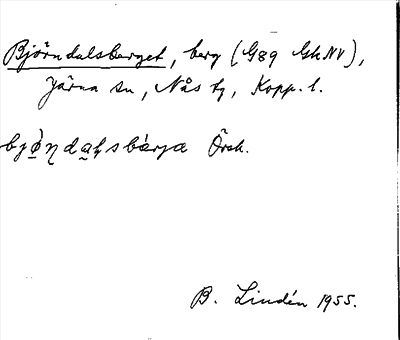 Björndalsberget, berg (G89 GhNV),
Järna sn, Nås tg, Kopp. l.
bjö̀ṇdaḷsbærjæ Örsh.
B. Lindén 1955.